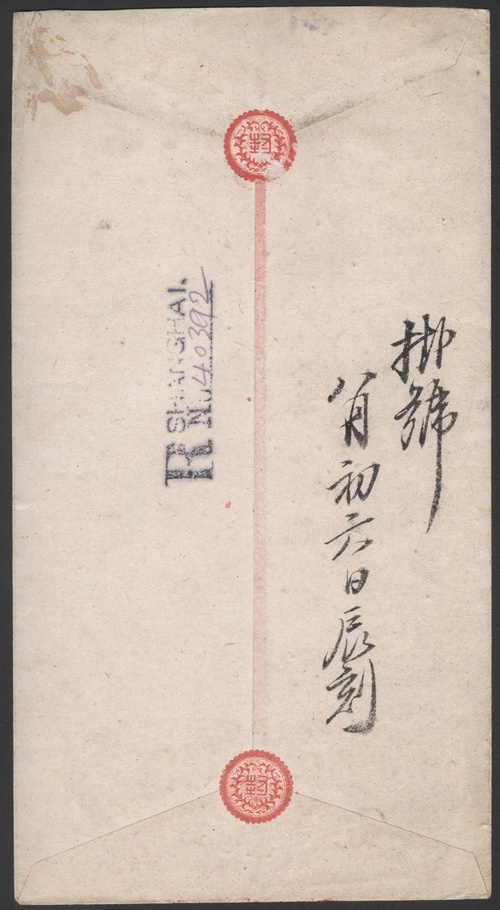 掛號
八月初六日辰刻
封
R SHANGHAI.
No 40392
封